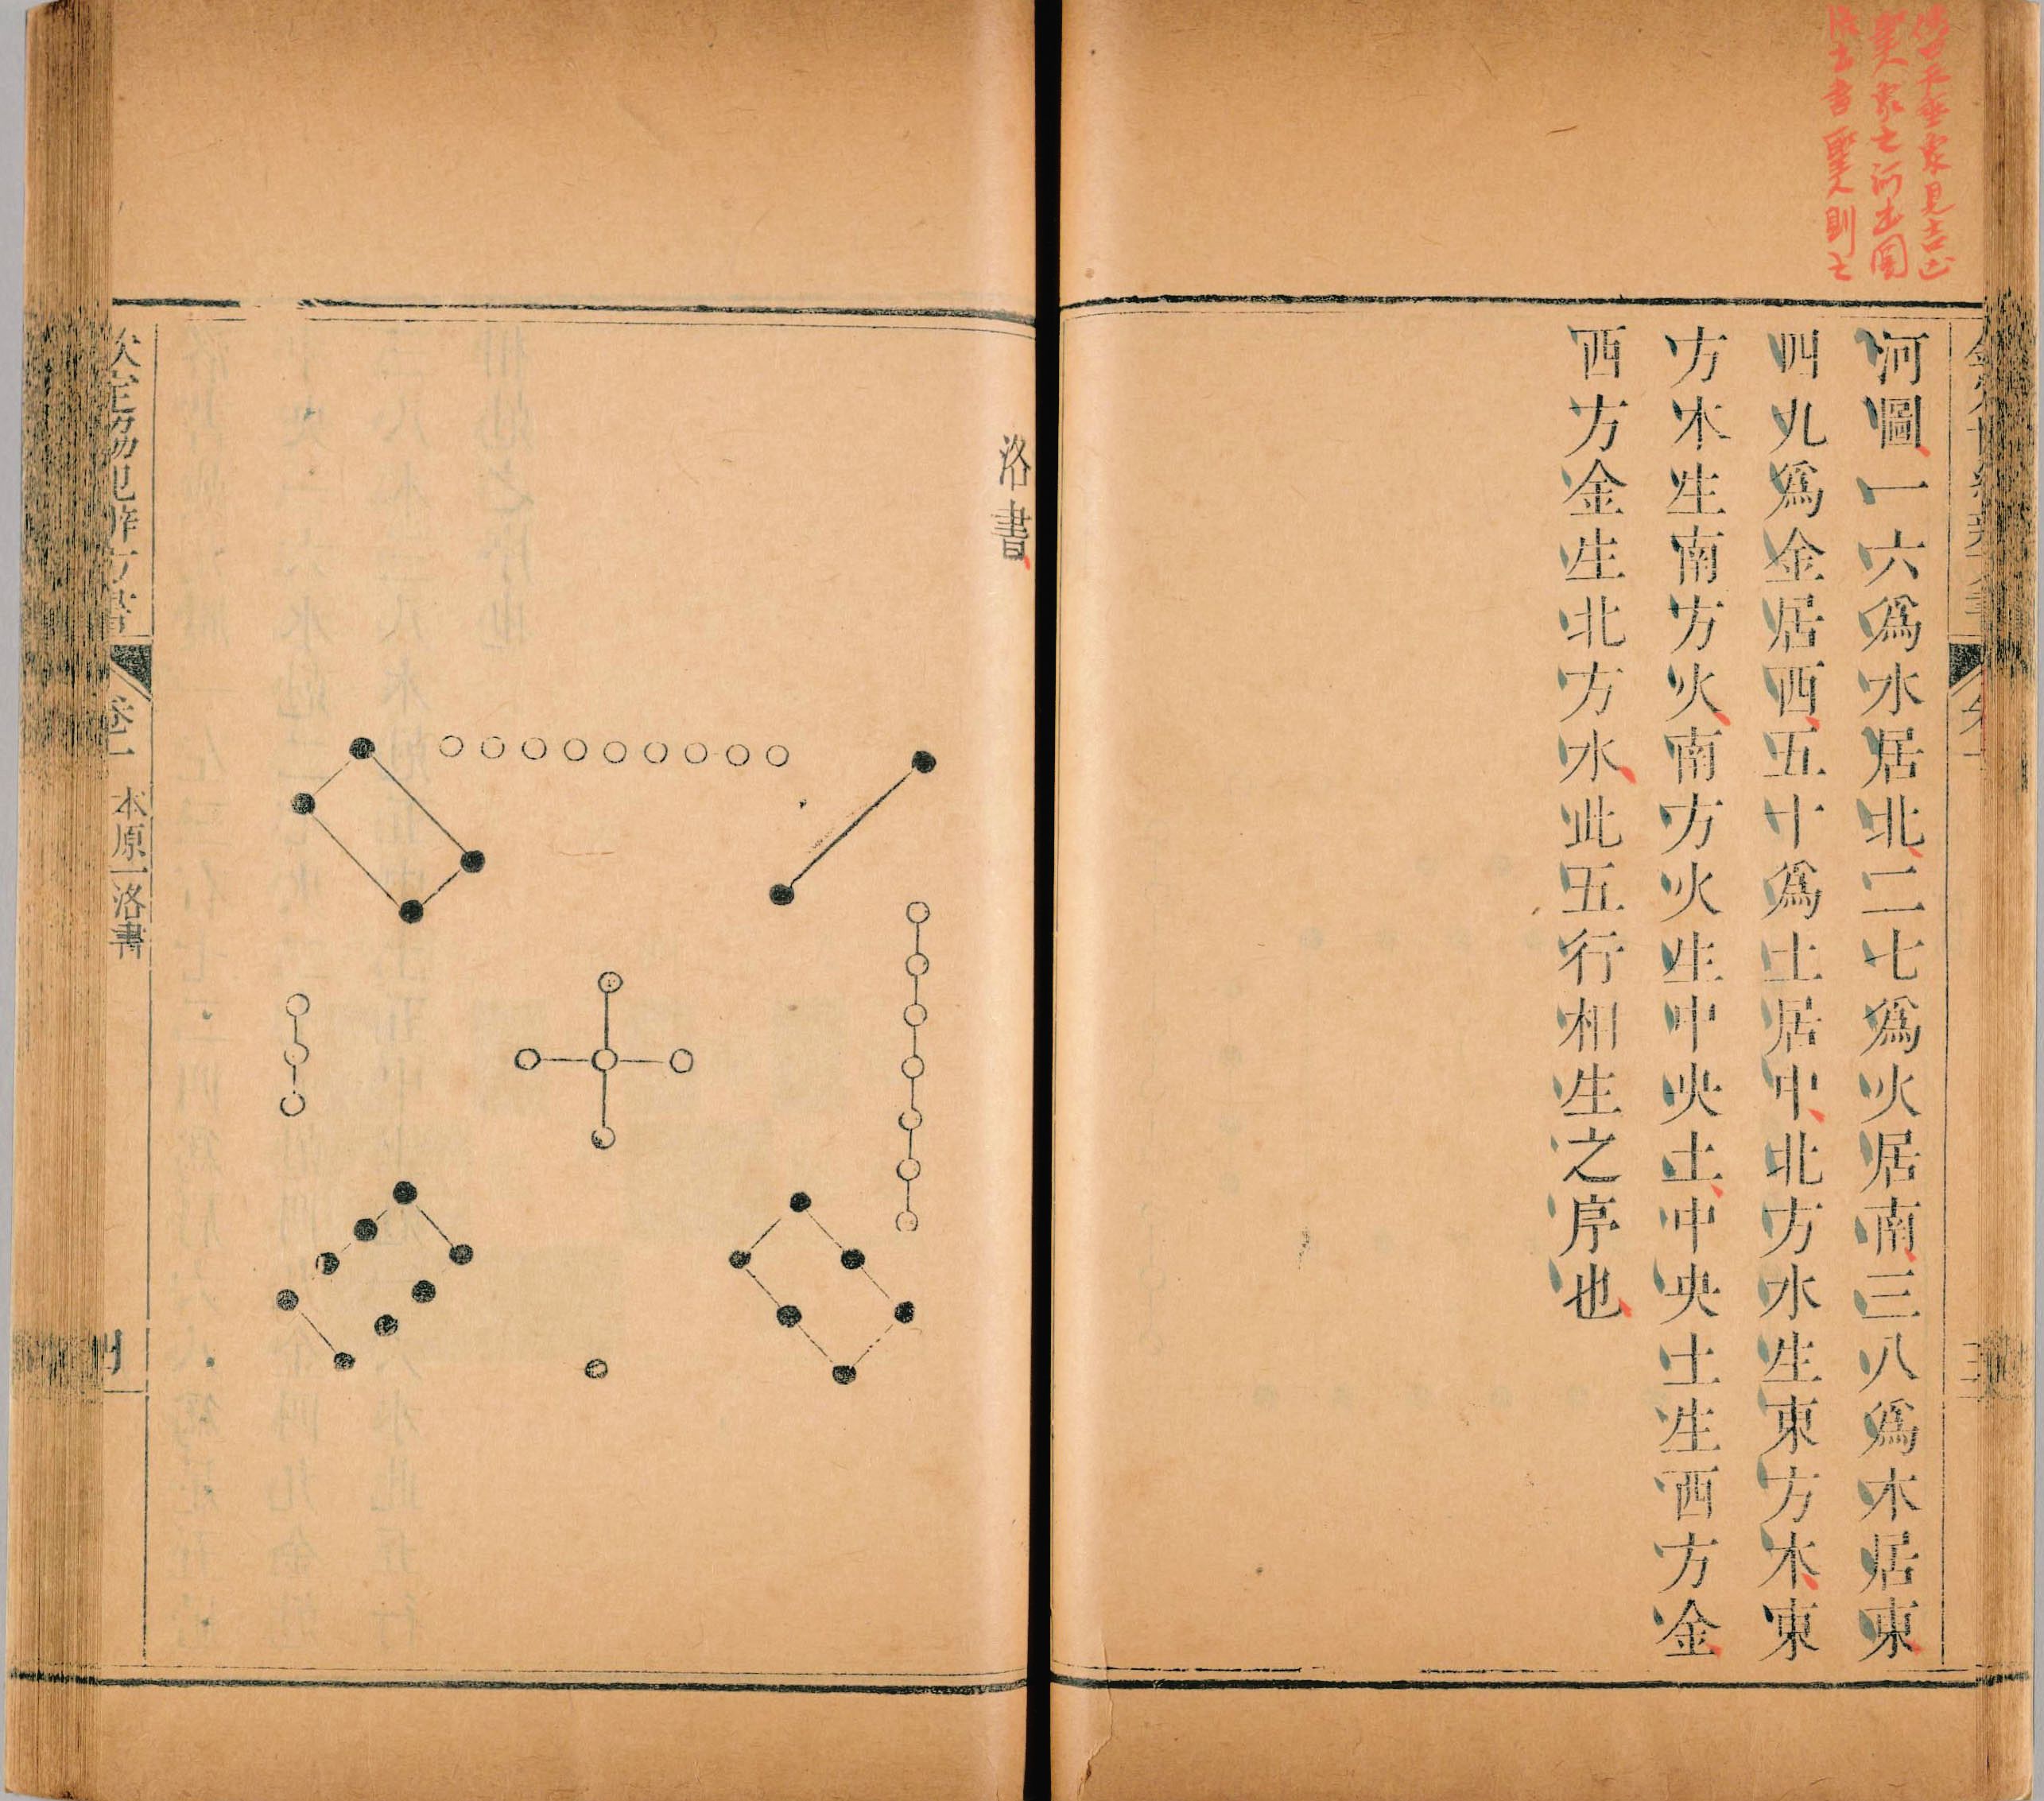 聖人象之河出圖
洛出書聖人則之
河圖一六爲水居北二七爲火居南三八爲木居東
四九爲金居西五十爲土居中北方水生東方木東
方木生南方火南方火生中央土中央土生西方金
西方金生北方水此五行相生之序也
洛書
欽定協紀辨方書 卷一 本原一洛書 四